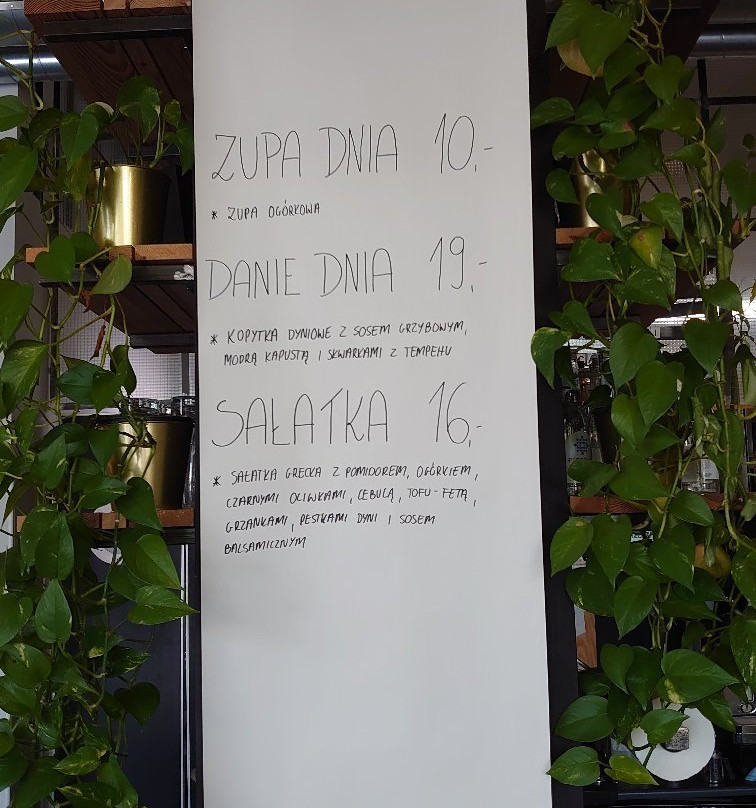 ZUPA DNIA 10,-
* ZUPA OGÓRKOWA
DANIE DNIA 19,-
* KOPYTKA DYNIOWE Z SOSEM GRZYBOWYM,
MODRĄ KAPUSTĄ I SKWARKAMI Z TEMPEHU
SAŁATKA 16,-
* SAŁATKA GRECKA Z POMIDOREM, OGÓRKIEM,
CZARNYMI OLIWKAMI, CEBULĄ, TOFU-FETĄ,
GRZANKAMI, PESTKAMI DYNI I SOSEM
BALSAMICZNYM